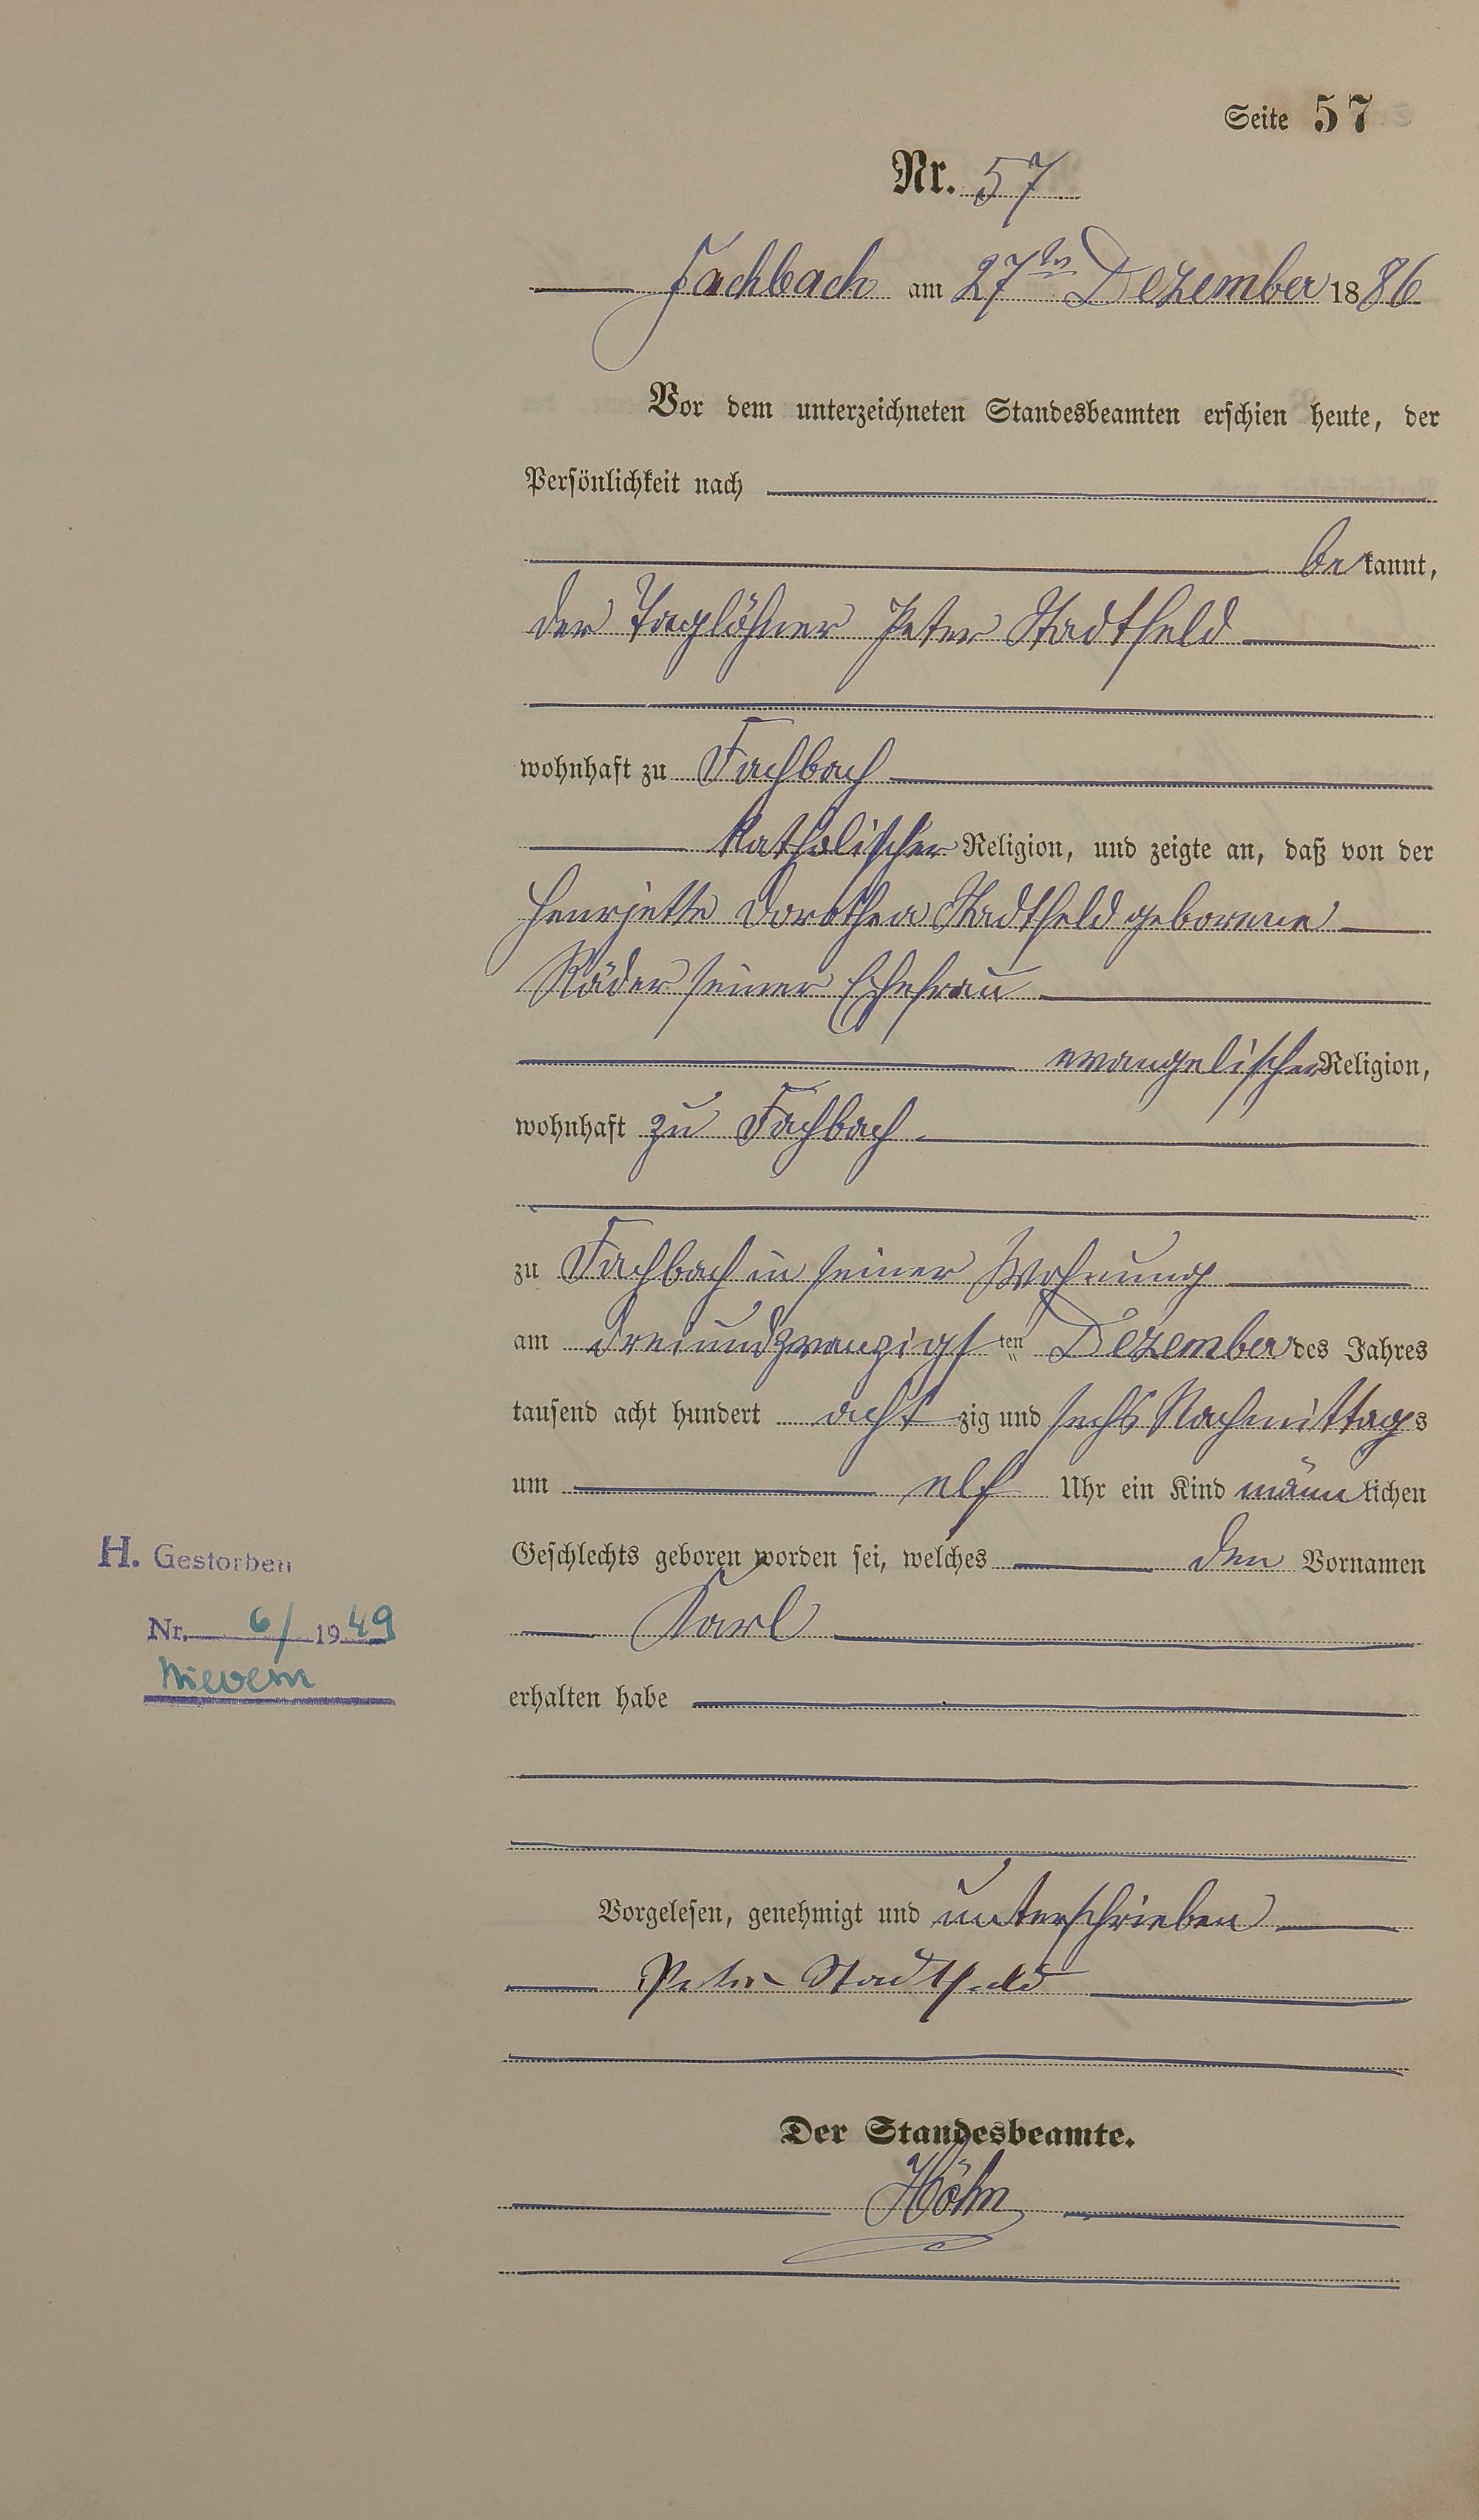 Seite 57
Nr. 57
Fachbach am 27ten Dezember 1886
Vor dem unterzeichneten Standesbeamten erschien heute, der
Persönlichkeit nach
bekannt,
der Taglöhner Peter Stadtfeld
wohnhaft zu Fachbach
katholischer Religion, und zeigte an, daß von der
Henrjette Dorothea Stadtfeld geborene
Räder seiner Ehefrau
evangelischer Religion,
wohnhaft zu Fachbach
zu Fachbach in seiner Wohnung
am dreiundzwanzigsten Dezember des Jahres
tausend acht hundert achtzig und sechs Nachmittags
um elf Uhr ein Kind männlichen
Geschlechts geboren worden sei, welches den Vornamen
Karl
erhalten habe
H. Gestorben
Nr. 6/1949
Nievern
Vorgelesen, genehmigt und unterschrieben
Peter Stadtfeld
Der Standesbeamte.
Höhn